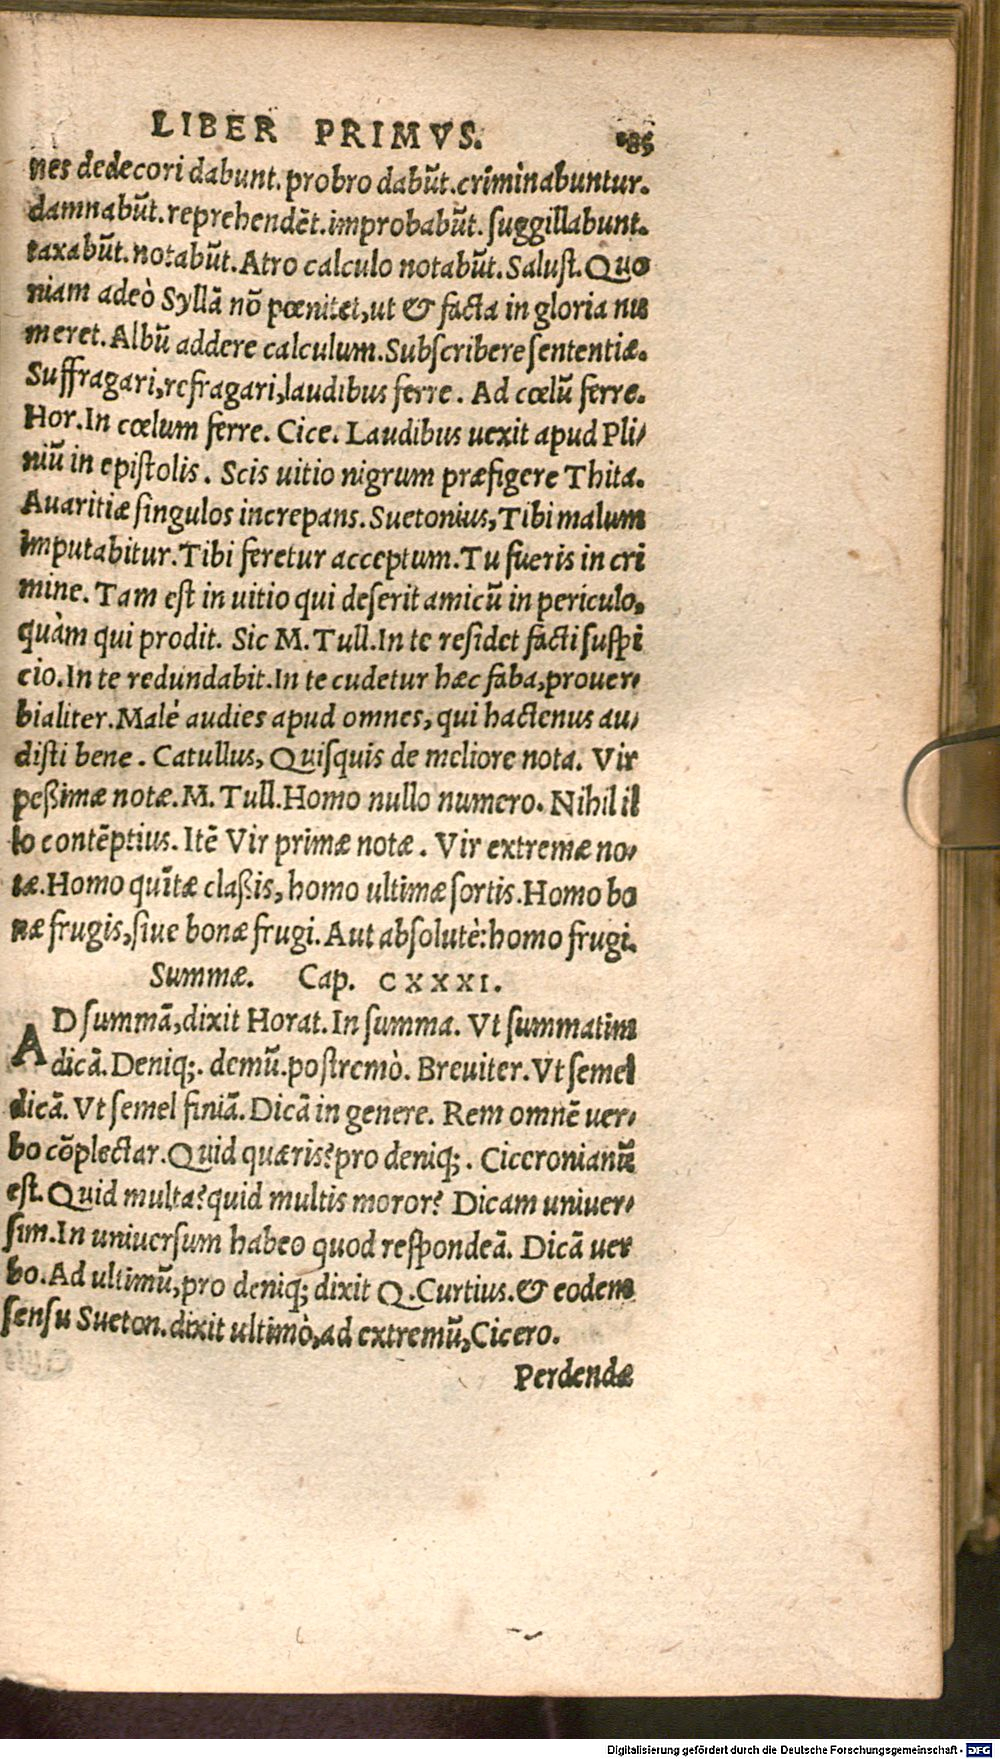 LIBER PRIMVS. 185
nes dedecori dabunt. probro dabūt. criminabuntur.
damnabūt. reprehendēt. improbabūt. ſuggillabunt.
taxabūt. notabūt. Atro calculo notabūt. Saluſt. Quo
niam adeò Syllā nō pœnitet, ut & facta in gloria nu
meret. Albū addere calculum. Subſcribere ſententiæ.
Suffragari, refragari, laudibus ferre. Ad cœlū ferre.
Hor. In cœlum ferre. Cice. Laudibus uexit apud Pli⸗
niū in epiſtolis. Scis uitio nigrum præfigere Thita.
Auaritiæ ſingulos increpans. Suetonius, Tibi malum
imputabitur. Tibi feretur acceptum. Tu fueris in cri
mine. Tam eſt in uitio qui deſerit amicū in periculo,
quàm qui prodit. Sic M. Tull. In te reſidet facti ſuſpi
cio. In te redundabit. In te cudetur hæc faba, prouer⸗
bialiter. Malè audies apud omnes, qui hactenus au⸗
diſti bene. Catullus, Quiſquis de meliore nota. Vir
peßimæ notæ. M. Tull. Homo nullo numero. Nihil il
lo contēptius. Itē Vir primæ notæ. Vir extremæ no⸗
tæ. Homo quītæ claßis, homo ultimæ ſortis. Homo bo
næ frugis, ſiue bonæ frugi. Aut abſolutè: homo frugi.
Summæ. Cap. CXXXI.
AD ſummā, dixit Horat. In ſumma. Vt ſummatim
dicā. Deniq;. demū. poſtremò. Breuiter. Vt ſemel
dicā. Vt ſemel finiā. Dicā in genere. Rem omnē uer⸗
bo cōplectar. Quid quæris? pro deniq;. Ciceronianū
eſt. Quid multa? quid multis moror? Dicam uniuer⸗
ſim. In uniuerſum habeo quod reſpondeā. Dicā uer
bo. Ad ultimū, pro deniq; dixit Q. Curtius. & eodem
ſenſu Sueton. dixit ultimò, ad extremū, Cicero.
Perdendæ
Digitalisierung gefördert durch die Deutsche Forschungsgemeinschaft - DFG